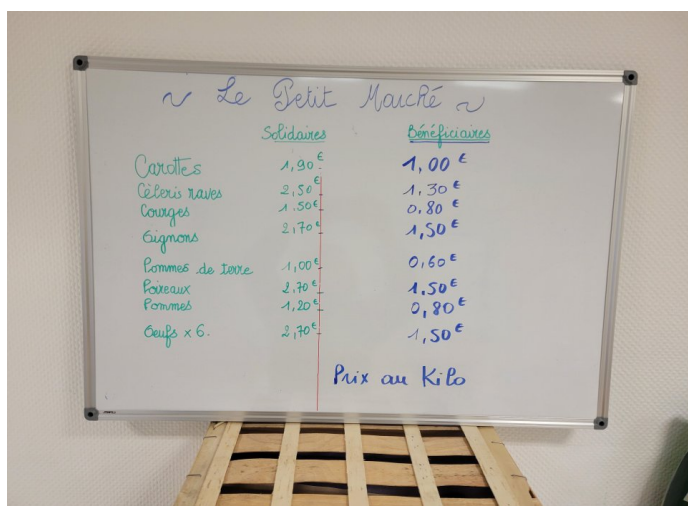 ~ Le Petit Marché ~
Solidaires Bénéficiaires
Carottes 1,90€ 1,00€
Céleris raves 2,50€ 1.30€
Courges 1.50€ 0,80€
Oignons 2,70€ 1,50€
Pommes de terre 1,00€ 0,60€
Poireaux 2.70€ 1.50€
Pommes 1,20€ 0,80€
Oeufs x 6. 2,70€ 1,50€
Prix au Kilo